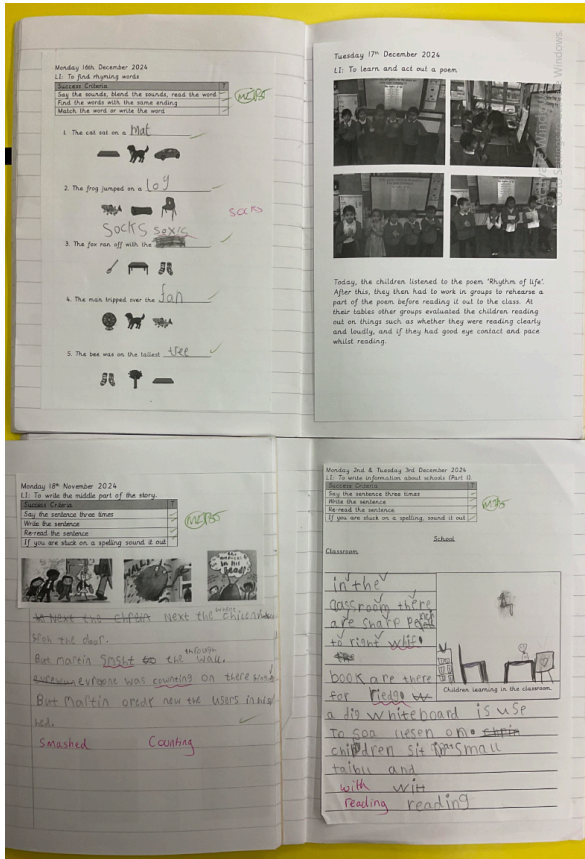 Monday 16th December 2024
LI: To find rhyming words
Success Criteria
Say the sounds, blend the sounds, read the word
Find the words with the same ending
Match the word or write the word
1. The cat sat on a mat
2. The frog jumped on a loy
socks
socks soxis
3. The fox ran off with the
4. The man tripped over the fan
5. The bee was on the tallest tree
Tuesday 17th December 2024
LI: To learn and act out a poem.
Windows.
Today, the children listened to the poem 'Rhythm of life'.
After this, they then had to work in groups to rehearse a
part of the poem before reading it out to the class. At
their tables other groups evaluated the children reading
out on things such as whether they were reading clearly
and loudly, and if they had good eye contact and pace
whilst reading.
Monday 18th November 2024
LI: To write the middle part of the story.
Success Criteria
Say the sentence three times
Write the sentence
Re-read the sentence
If you are stuck on a spelling, sound it out
Next the
the door.
through
But martin smsht the wall.
evryone was counting on there
But Martin new the users in his
hed.
Smashed Counting
Monday 2nd & Tuesday 3rd December 2024
LI: To write information about schools (Part 1).
Success Criteria
Say the sentence three times
Write the sentence
Re-read the sentence
If you are stuck on a spelling, sound it out
School
Classroom
in the
classroom there
are sharp
to right
book are there
for
Children learning in the classroom.
a dig whiteboard is use
to
children sit small
and
with wiH
reading reading